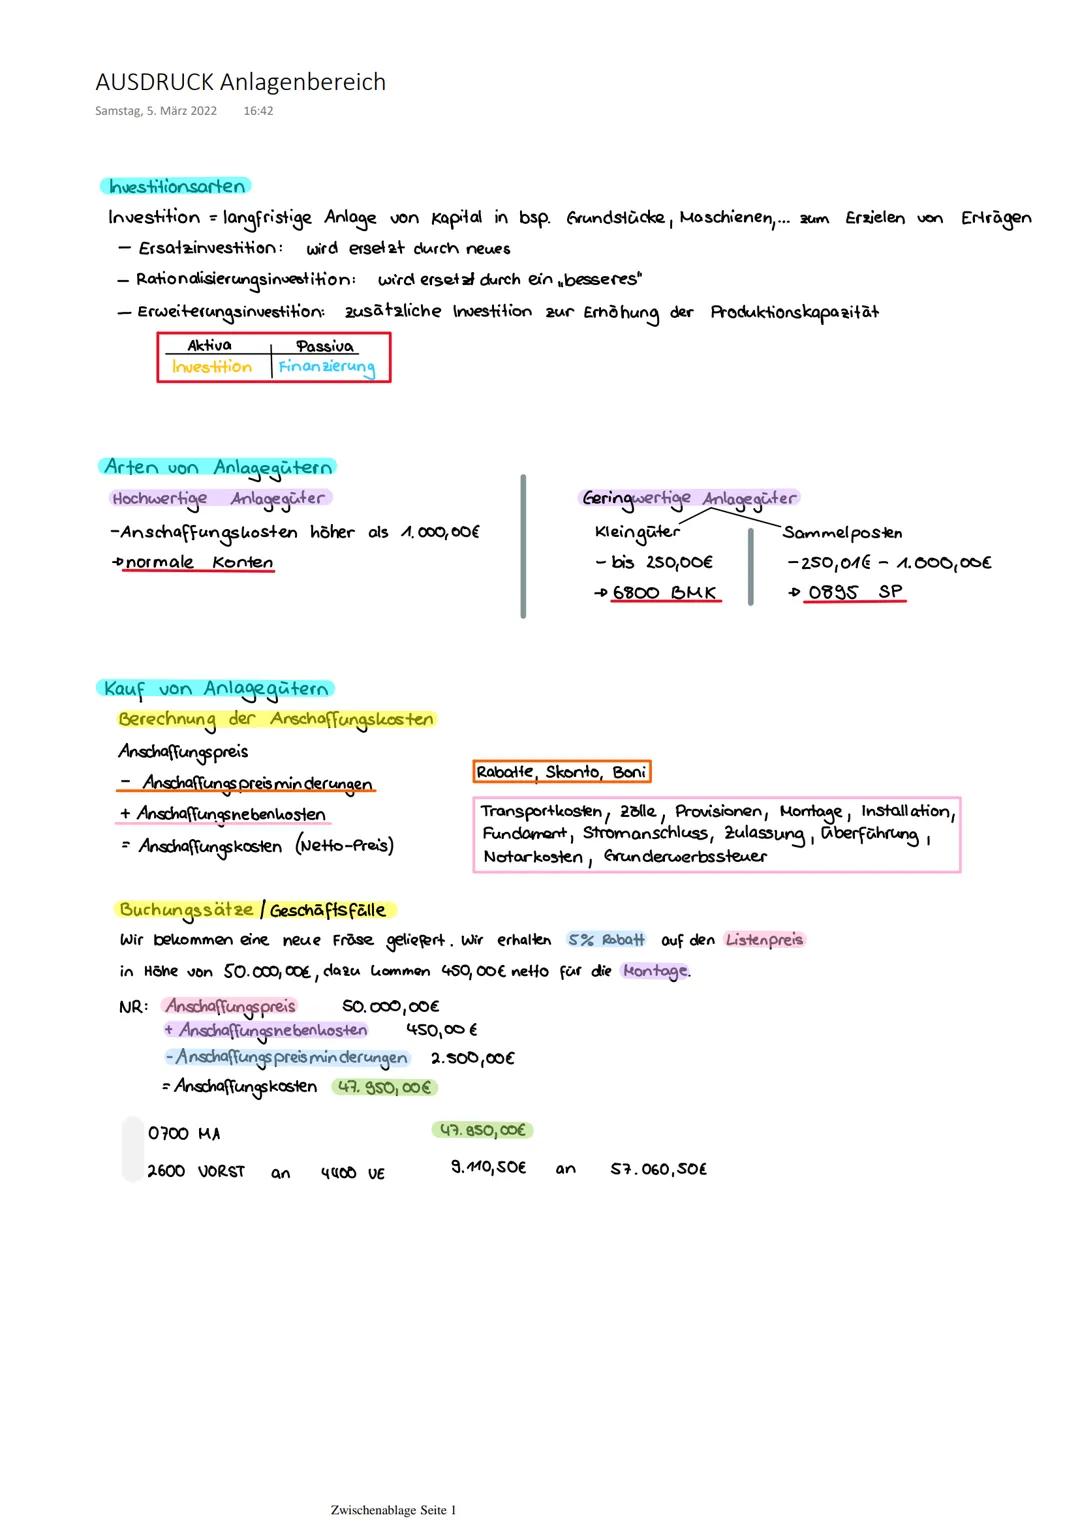 AUSDRUCK Anlagenbereich
Samstag, 5. März 2022 16:42
Investitionsarten
Investition = langfristige Anlage von Kapital in bsp. Grundstücke, Maschienen,... zum Erzielen von Erträgen
- Ersatzinvestition: wird ersetzt durch neues
- Rationalisierungsinvestition: wird ersetzt durch ein „besseres"
- Erweiterungsinvestition: zusätzliche Investition zur Erhöhung der Produktionskapazität
Aktiva Passiva
Investition Finanzierung
Arten von Anlagegütern
Hochwertige Anlagegüter
-Anschaffungskosten höher als 1.000,00€
→normale Konten
Geringwertige Anlagegüter
Kleingüter Sammelposten
- bis 250,00€ -250,01€ - 1.000,00€
→ 6800 BMK → 0895 SP
Kauf von Anlagegütern
Berechnung der Anschaffungskosten
Anschaffungspreis
- Anschaffungspreisminderungen Rabatte, Skonto, Boni
+ Anschaffungsnebenkosten
= Anschaffungskosten (Netto-Preis)
Transportkosten, Zölle, Provisionen, Montage, Installation,
Fundament, Stromanschluss, Zulassung, Überführung,
Notarkosten, Grunderwerbssteuer
Buchungssätze / Geschäftsfälle
Wir bekommen eine neue Fräse geliefert. Wir erhalten 5% Rabatt auf den Listenpreis
in Höhe von 50.000,00€, dazu kommen 450,00€ netto für die Montage.
NR: Anschaffungspreis 50.000,00€
+ Anschaffungsnebenkosten 450,00€
- Anschaffungspreisminderungen 2.500,00€
= Anschaffungskosten 47.950,00€
0700 MA 47.950,00€
2600 VORST an 4400 VE 9.110,50€ an 57.060,50€
Zwischenablage Seite 1